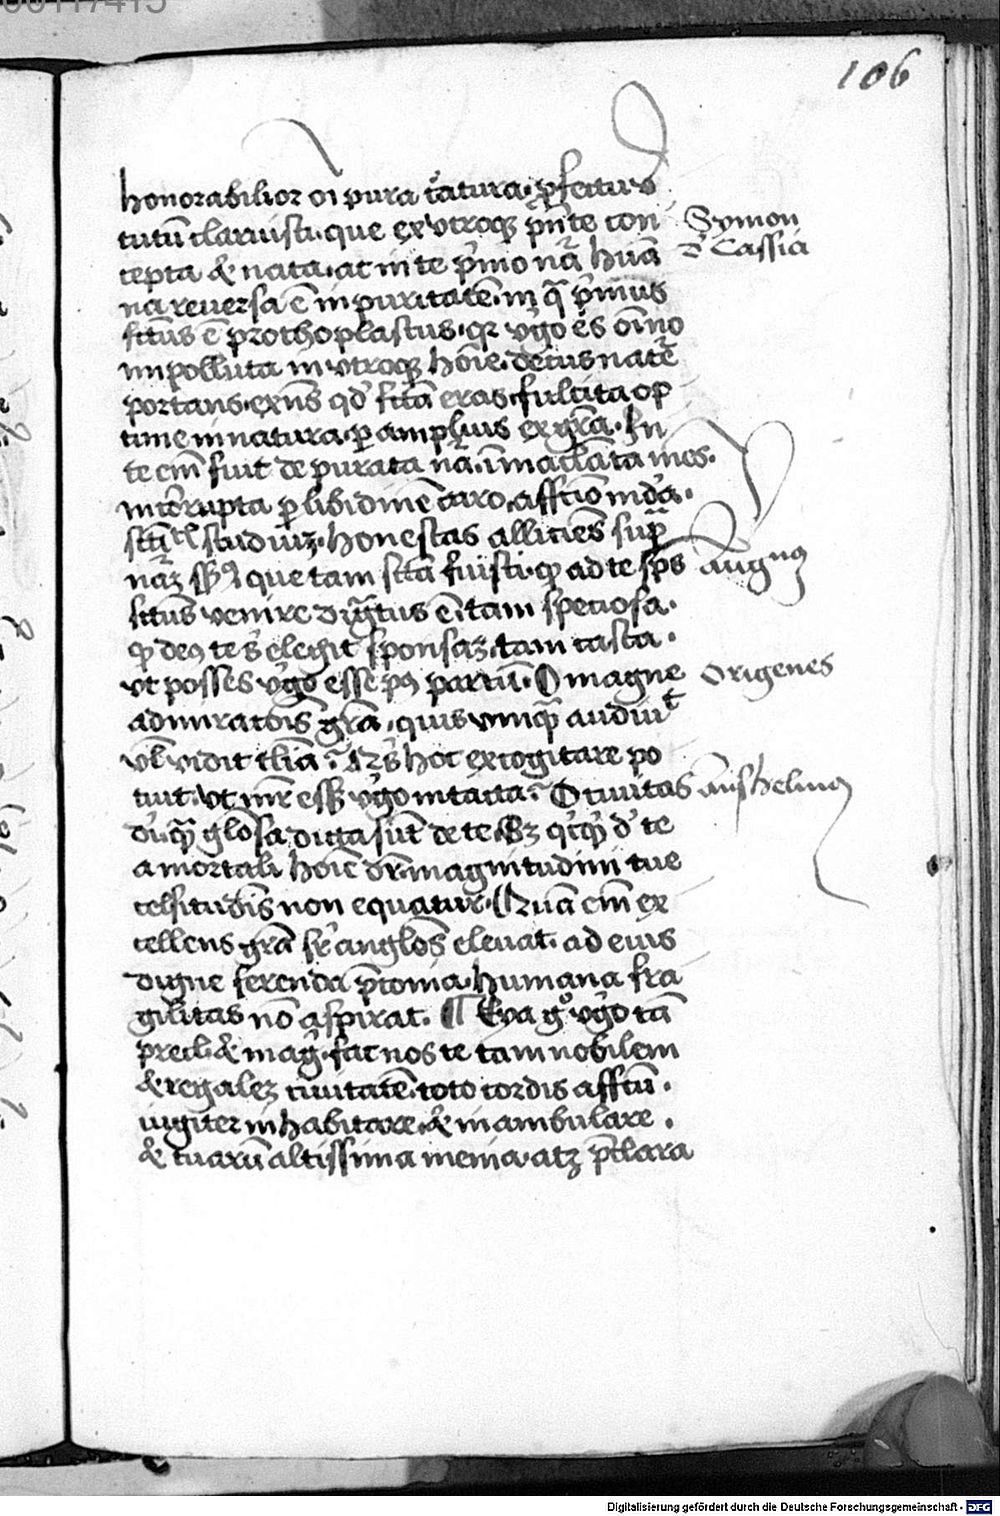 106
honorabilior oi pura c̄atura · ꝑfectus
tutū claruisti · que ex utroq pn̄te con
cepta & nata · ac in te p̄mo nā huā
na reuersa ē in puritatē · in q̄ p̄mus
situs ē prothoplastus · qr v̓go es oīno
impolluta in utroq hōie · decus nate
portans · exn̄s qd̓ sc̄ta eras · fulcita op
time in natura · ꝑ amplius ex gr̄a · In
te em̄ fuit depurata nā · īmaclata mēs ·
interrupta ꝑ libidinē caro · affctio mūda ·
honestas alliciens supͣ
que tam sctā fuisti · qꝫ ad te sps
sctūs venire dignatus ē · tam speciosa ·
qꝫ deꝰ te elegit sponsaꝫ · tam casta ·
vt posses v̓go esse pꝰ partū · O magne
admiratois gr̄a · quis vnqͣ audiuit
vl̄ vidit tlīa · hoc excogitare po
tuit · ut mr̄ esset v̓go intacta · O ciuitas
dī · q̄ glōsa dicta sūt de te · Sꝫ qcq d̓ te
a mortali hoīe dr̄ · magnitudini tue
celsitudīs non equatur · Quā em̄ ex
cellens gr̄a sr̄ anglos eleuat · ad euis
digne ferenda p̄conia · humana fra
gilitas nō aspirat · ¶ Eya gͦ v̓go tā
precl · & mag̓ · fac nos te tam nobilem
& regaleꝫ ciuitatē · toto cordis affctū ·
iugiter inhabitare · & inambulare ·
& tuarū altissima menia · atꝫ p̄clara
Symon
d̓ Cassia
Augꝰ
Origenes
Anshelmꝰ
Digitalisierung gefördert durch die Deutsche Forschungsgemeinschaft - DFG